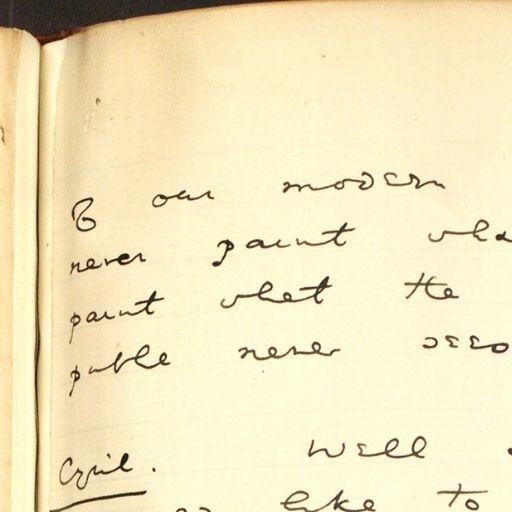 of our modern
never paint
paint what the
public never sees
Cyril. Well
like to